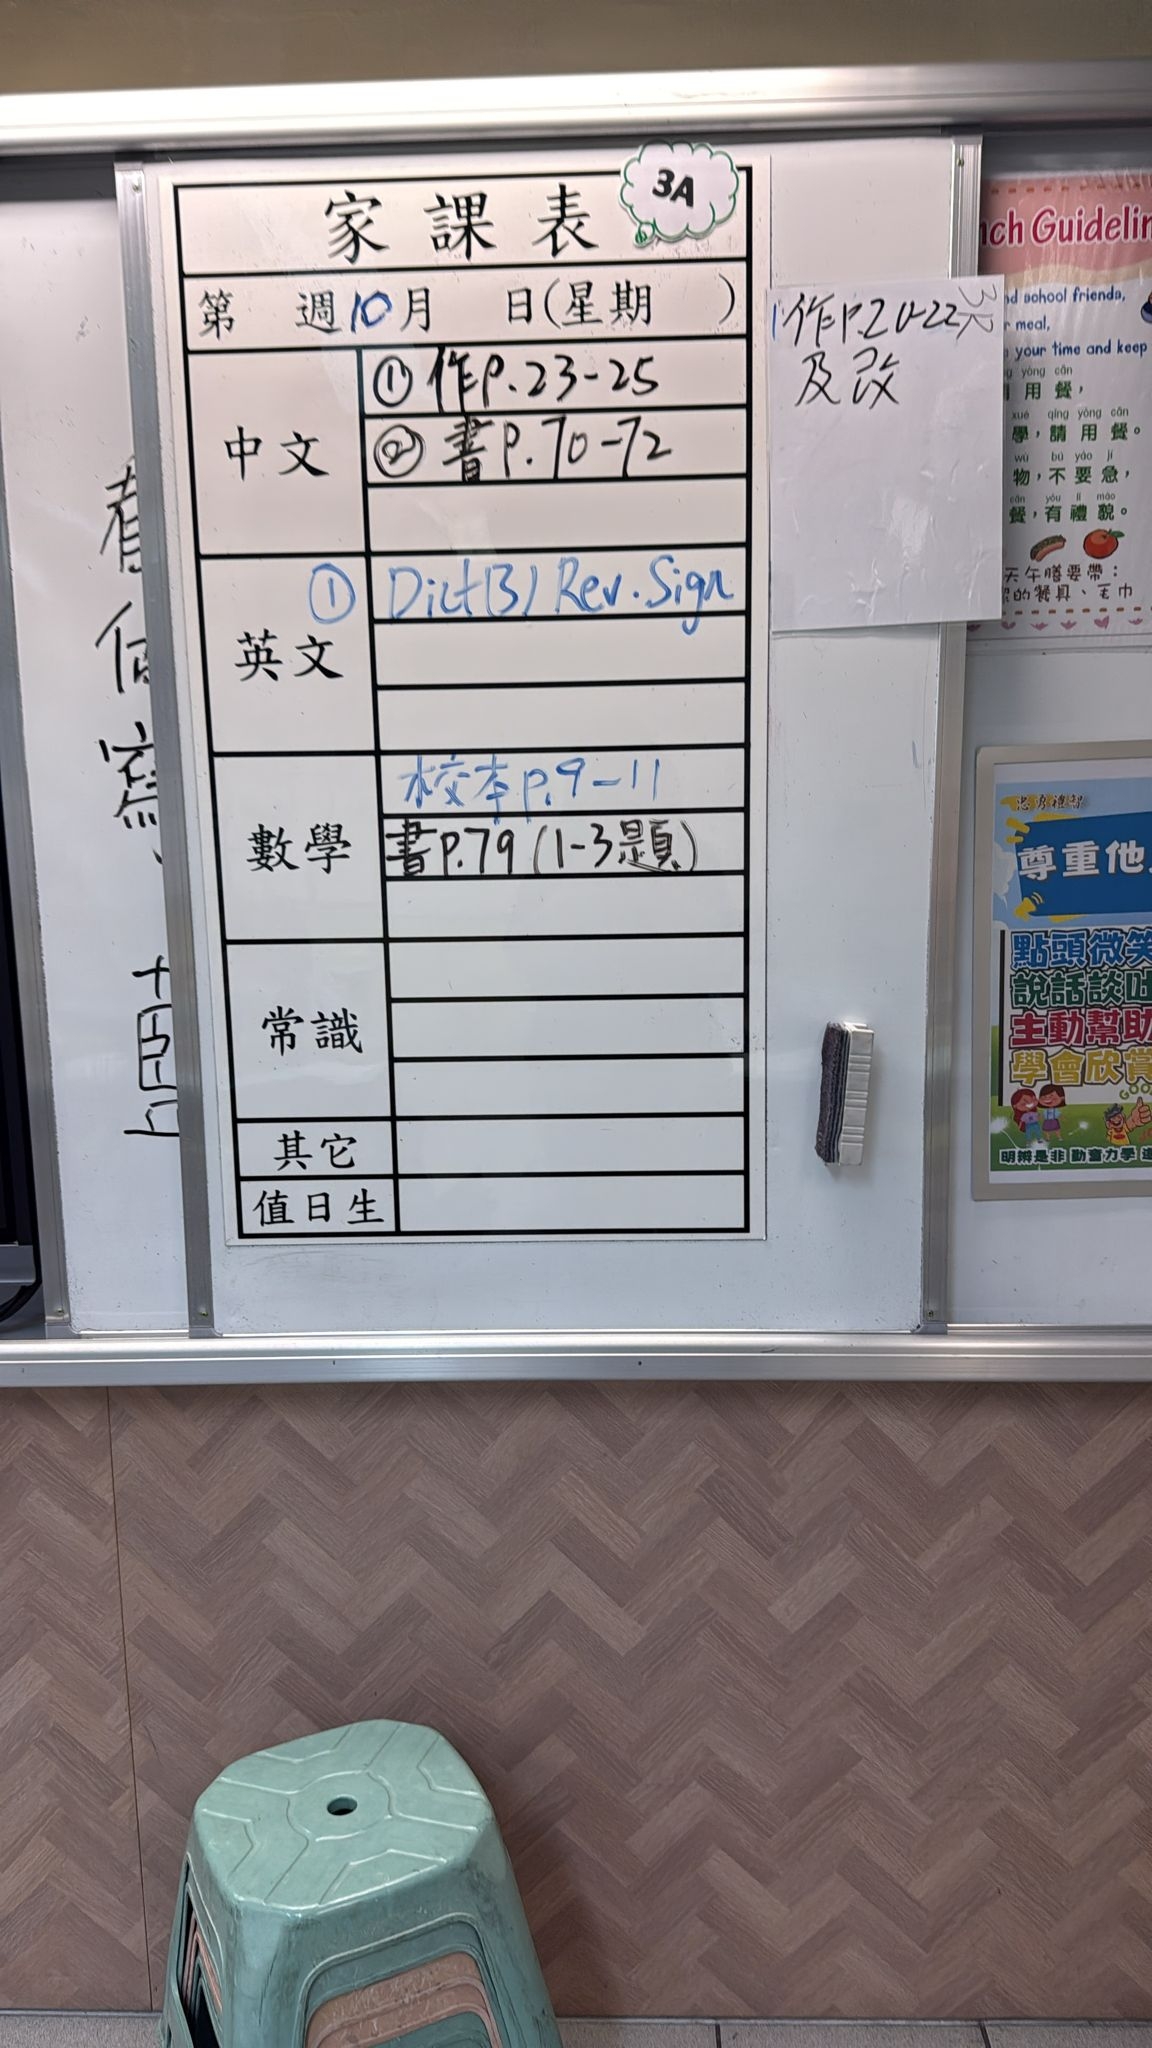 家課表
3A
第 週10月 日(星期 )
中文
①作P.23-25
②書P.70-72
英文
① Dict(3) Rev. Sign
數學
校本p.9-11
書P.79(1-3題)
常識
其它
值日生
作P.20-22
及改
nch Guidelin
nd school friends,
r meal,
your time and keep
yòng cān
用餐,
xué qǐng yòng cān
學,請用餐。
wù bú yào jí
物,不要急,
cān yǒu lǐ mào
餐,有禮貌。
天午膳要帶:
的餐具、毛巾
忠勇禮智
尊重他
點頭微笑
說話談吐
主動幫助
學會欣賞
GOO
明辨是非 勤奮力學